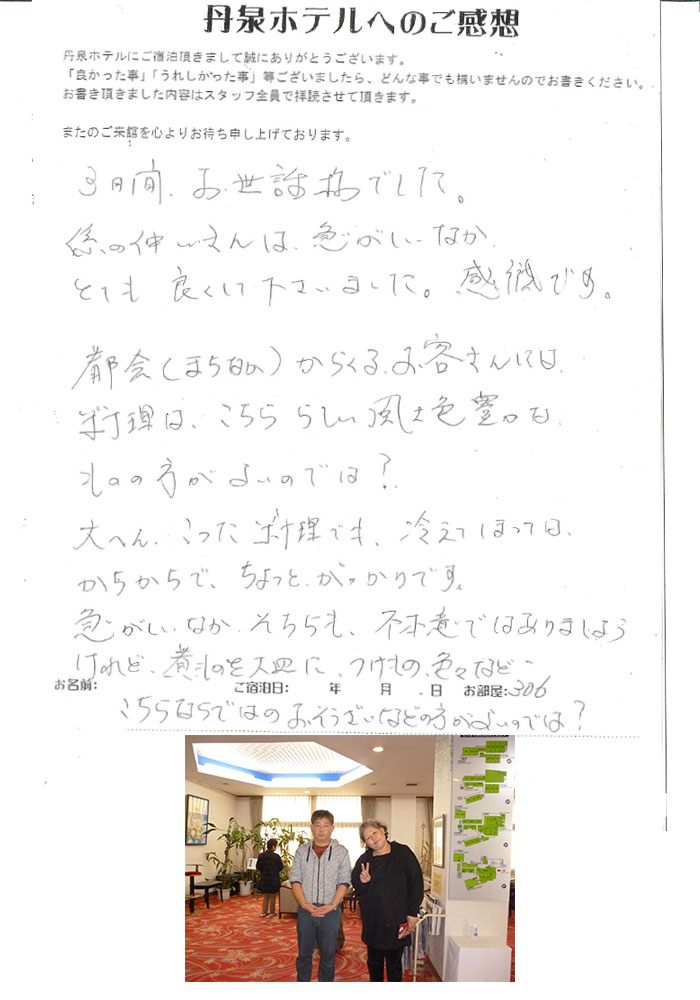 丹泉ホテルへのご感想
丹泉ホテルにご宿泊頂きまして誠にありがとうございます。
「良かった事」「うれしかった事」等ございましたら、どんな事でも構いませんのでお書きください。
お書き頂きました内容はスタッフ全員で拝読させて頂きます。
またのご来館を心よりお待ち申し上げております。
3日間、お世話様でした。
係の仲いさんは、急がしいなか、
とても良くして下さいました。感激です。
都会(まちなか)からくるお客さんには、
料理は、こちららしい風土色豊かな
ものの方がよいのでは?
大へん、こった料理でも、冷えてしまっては、
からからで、ちょっとがっかりです。
急がしいなか、そちらも、不本意ではありましょう
けれど、煮ものを大皿に、つけもの色々など、
お名前: ご宿泊日: 年 月 日 お部屋:306
こちらならではのおそうざいなどの方がよいのでは?